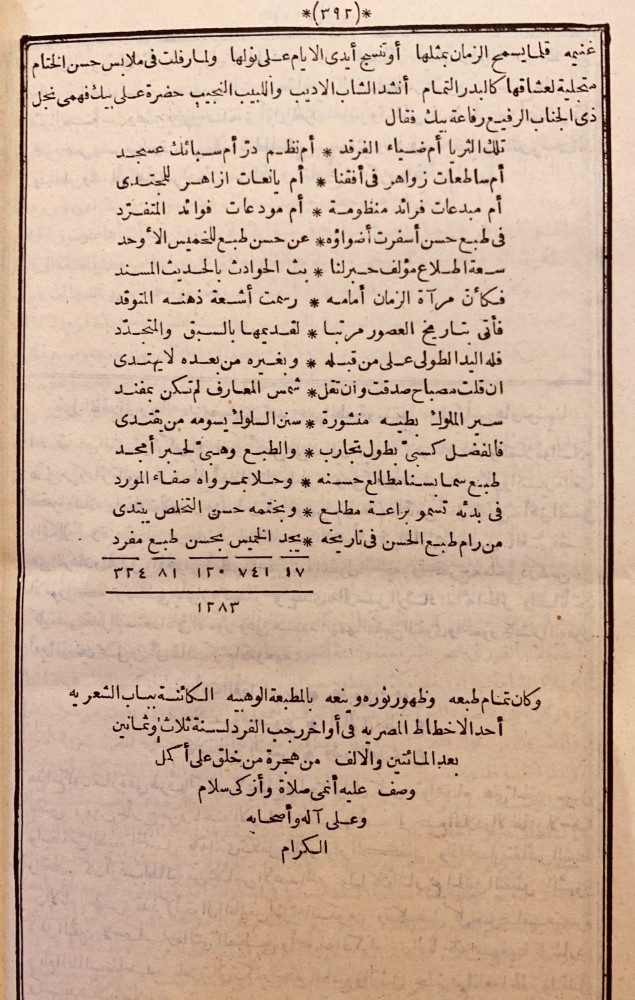 *(٣٩٢)*
غنيمه قلما يسمح الزمان بمثلها أو تنسج أيدى الايام على نولها ولما رفلت فى ملابس حسن الختام
متجلية لعشاقها كالبدر التمام أنشد الشاب الاديب واللبيب النجيب حضرة على بيك فهمى نجل
ذى الجناب الرفيع رفاعة بيك فقال
تلك الثريا أم ضياء الفرقد * أم نظم در أم سبائك عسجد
أم ساطعات زواهر فى أفقنا * أم يانعات ازاهر للمجتدى
أم مبدعات فرائد منظومة * أم مودعات فوائد المتفرد
فى طبع حسن أسفرت أضواؤه * عن حسن طبع للخميس الأوحد
سعة اطلاع مؤلف حبر لنا * بث الحوادث بالحديث المسند
فكأن مرآة الزمان أمامه * رسمت أشعة ذهنه المتوقد
فأتى بتاريخ العصور مرتبا * لقديمها بالسبق والمتجدد
فله اليد الطولى على من قبله * وبغيره من بعده لا يهتدى
ان قلت مصباح صدقت وان تقل * شمس المعارف لم تكن بمفند
سير الملوك بطيه منشورة * سنن السلوك بسومه من يقتدى
فالفضل كسبىّ بطول تجارب * والطبع وهبىّ لحبر أمجد
طبع سما بسنا مطالع حسنه * وحلا بمرواه صفاء المورد
فى بدئه تسمو براعة مطلع * وبختمه حسن التخلص يبتدى
من رام طبع الحسن فى تاريخه * يجد الخميس بحسن طبع مفرد
١٧ ٧٤١ ١٢٠ ٨١ ٣٢٤
١٢٨٣
وكان تمام طبعه وظهور نوره وينعه بالمطبعة الوهبيه الكائنة بباب الشعريه
أحد الاخطاط المصريه فى أواخر رجب الفرد لسنة ثلاث وثمانين
بعد المائتين والالف من هجرة من خلق على أكمل
وصف عليه أنمى صلاة وأزكى سلام
وعلى آله وأصحابه
الكرام